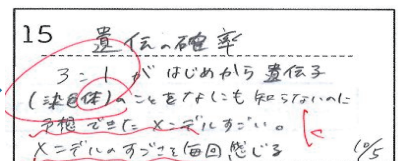 15 遺伝の確率
3:1がはじめから遺伝子
(染色体)のことをなしにも知らないのに
予想できたメンデルすごい。
メンデルのすごさを毎回感じる 10/5